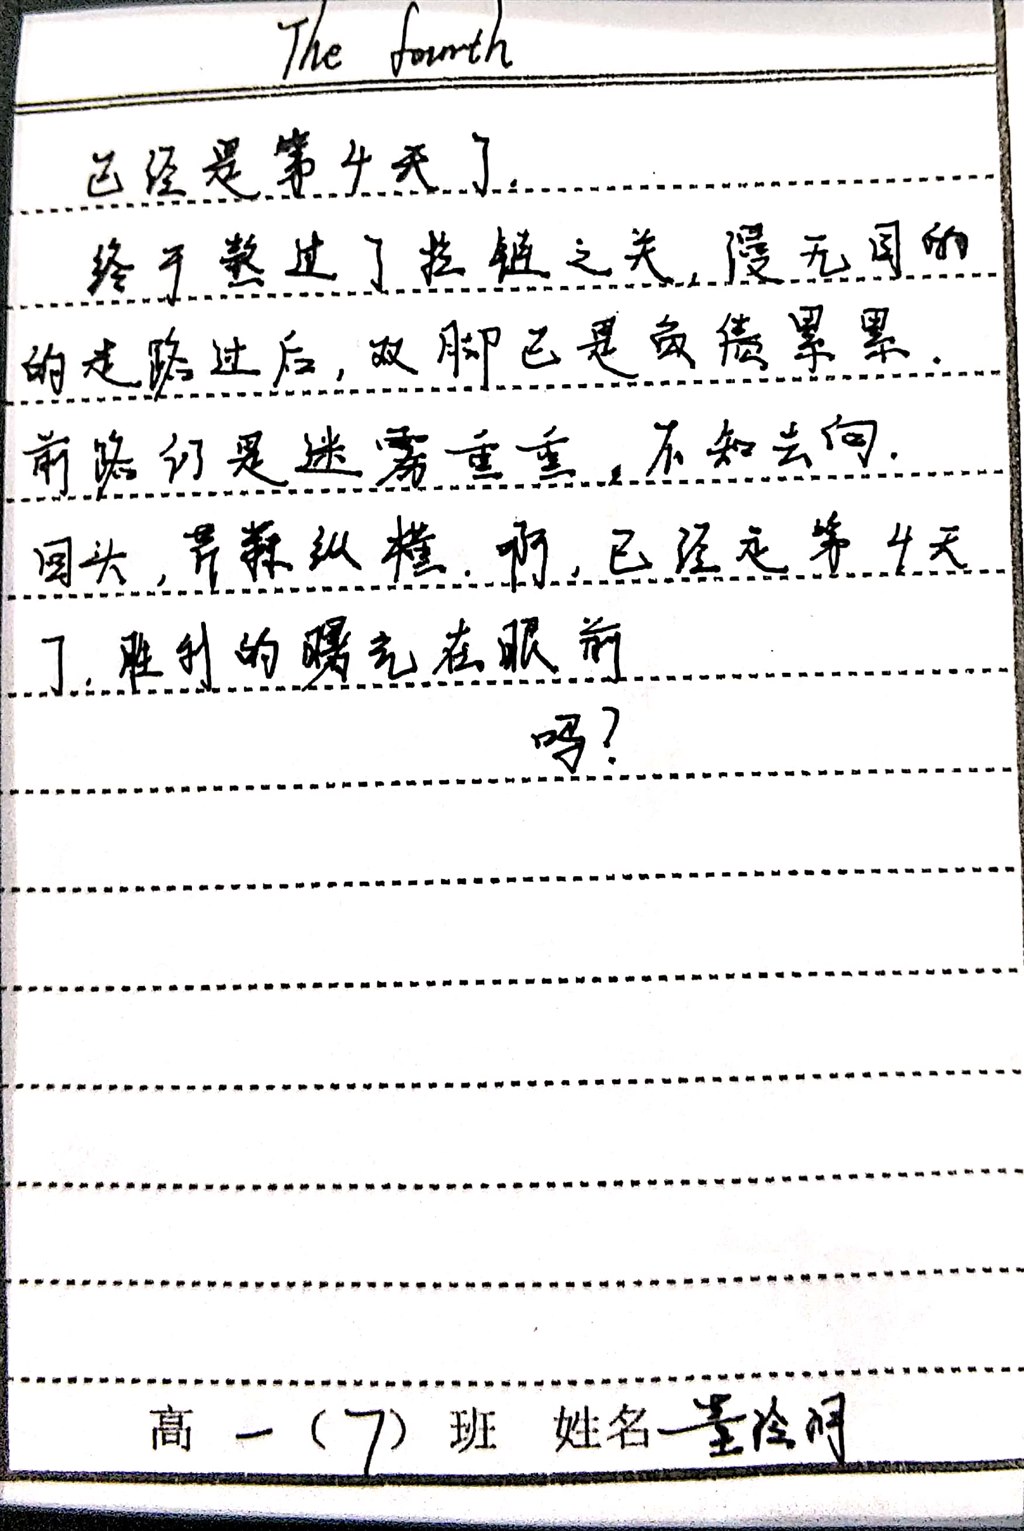 The fourth
已经是第4天了.
终于熬过了拉链之关,漫无目的
的走路过后,双脚已是负债累累.
前路仍是迷雾重重,不知去向.
回头,荆棘纵横.啊,已经是第4天
了.胜利的曙光在眼前
吗?
高一(7)班 姓名 董